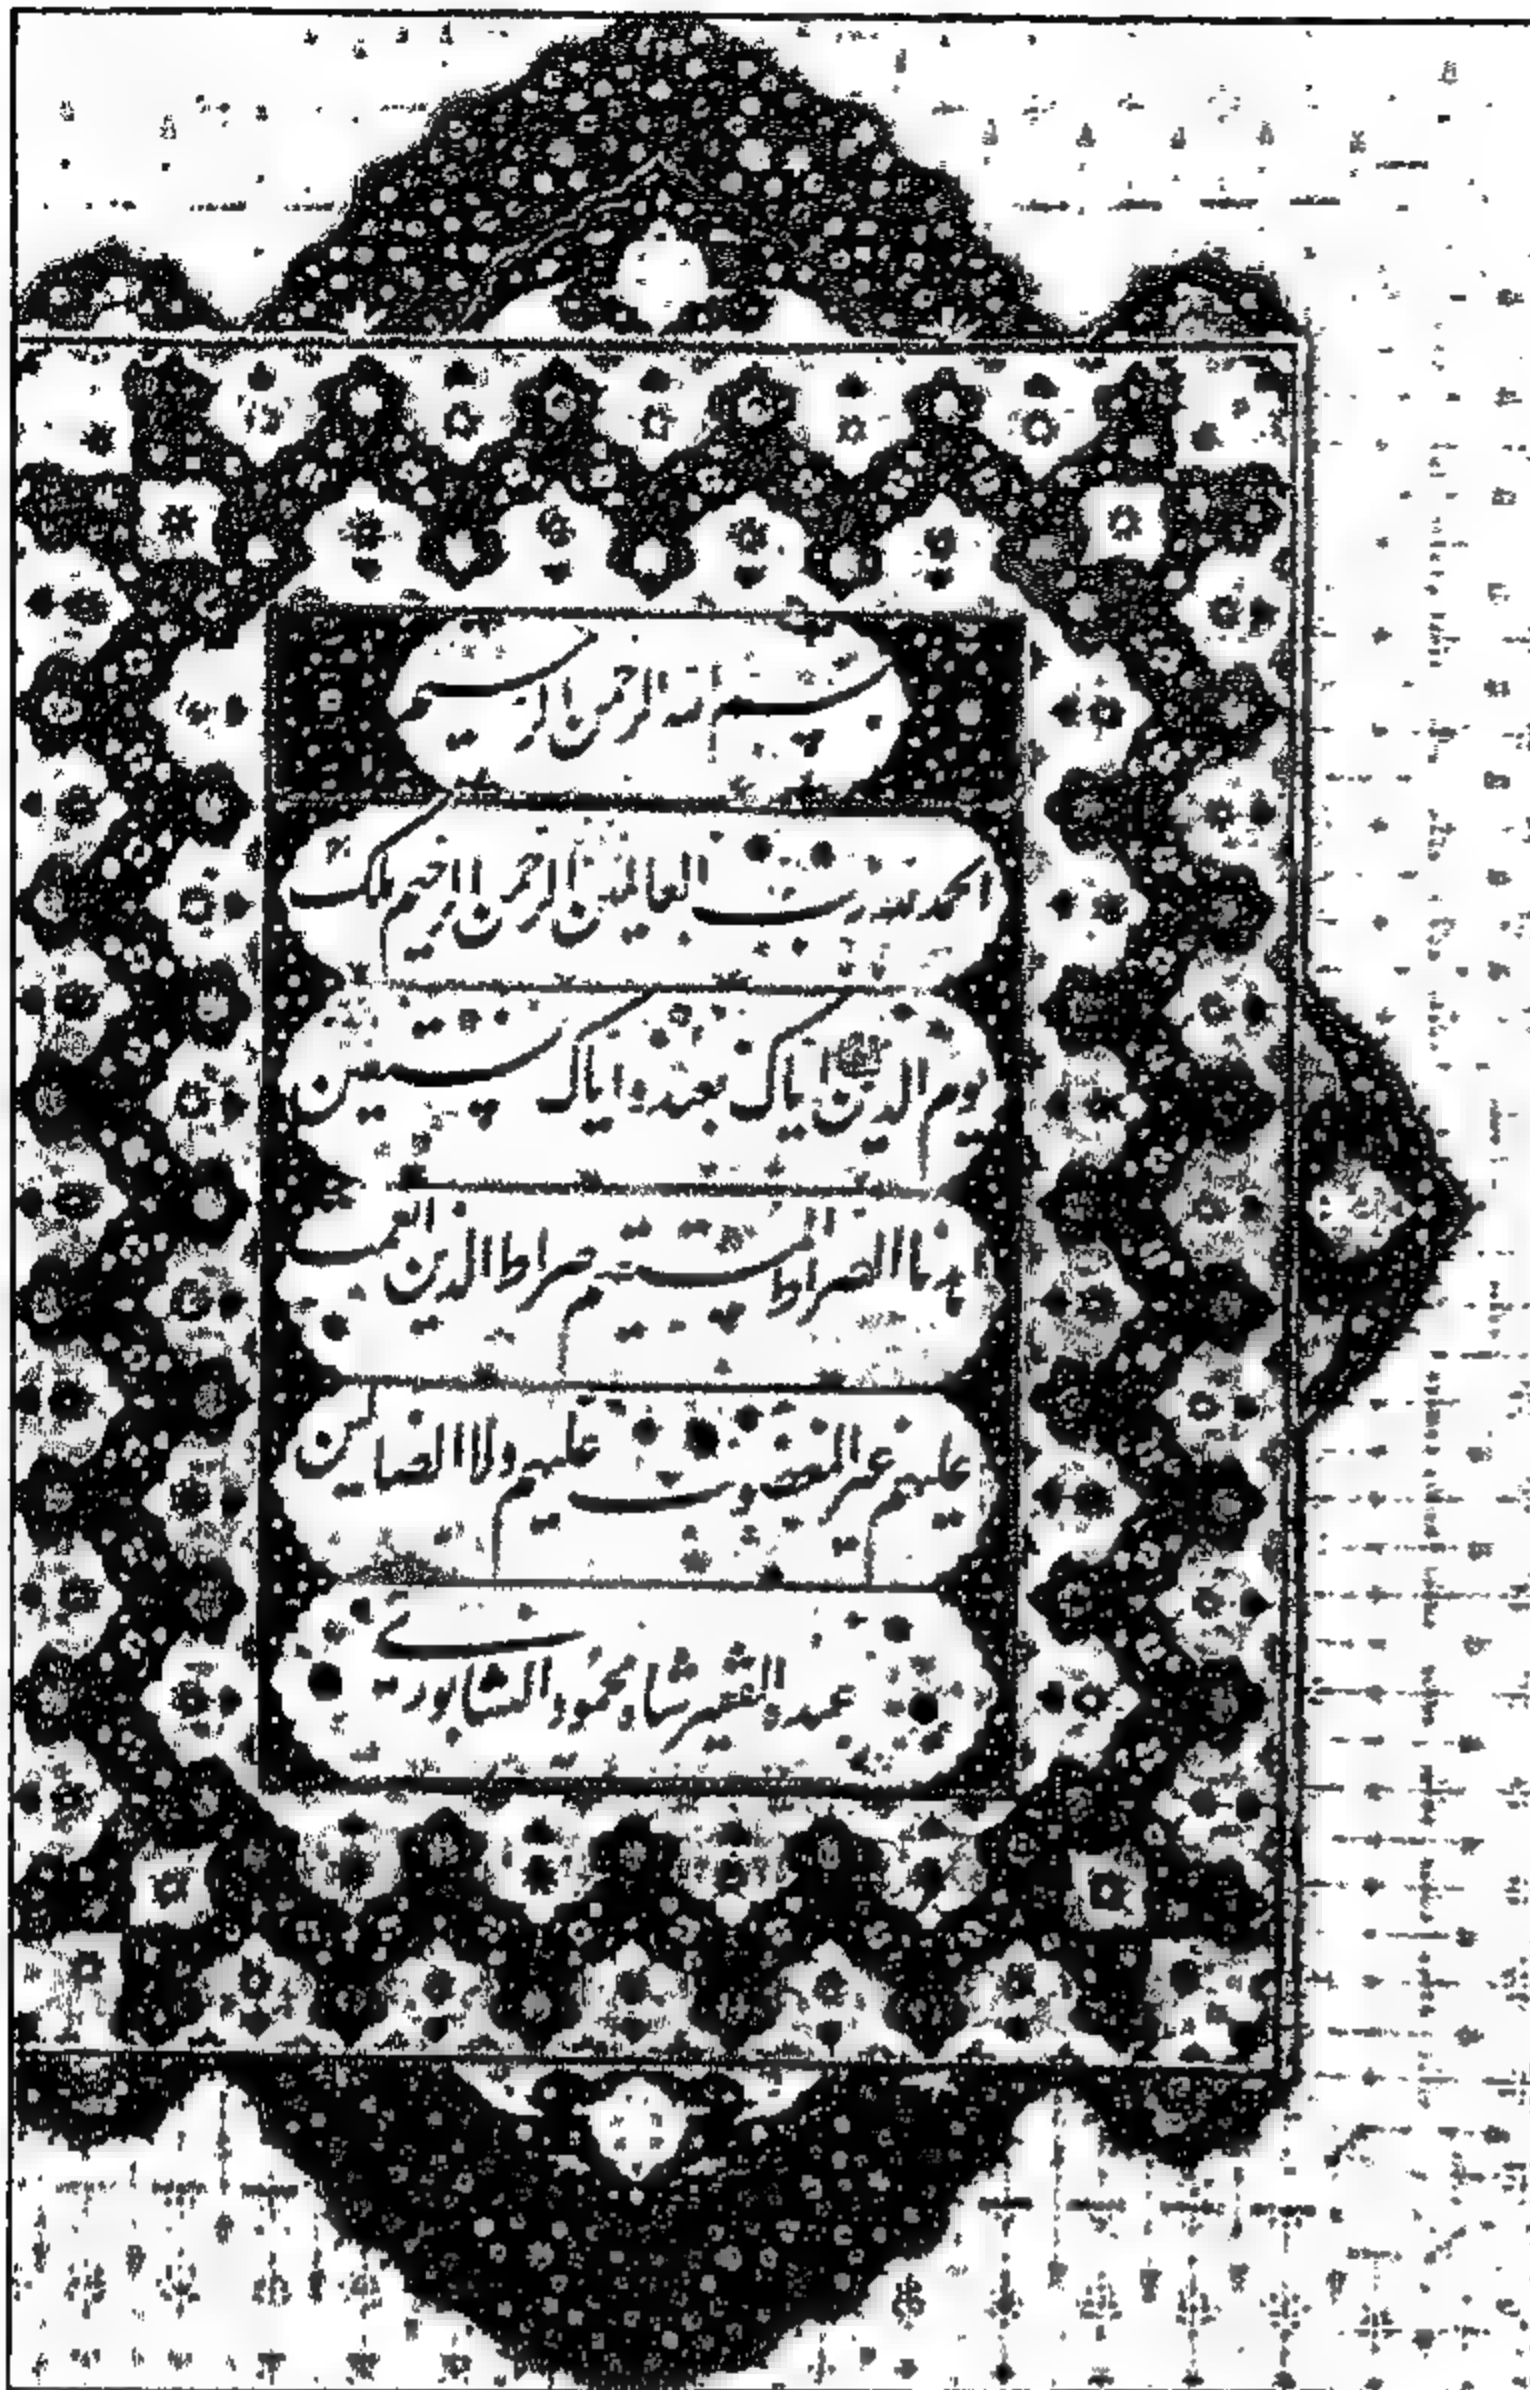 بسم الله الرحمن الرحیم
الحمد لله رب العالمین الرحمن الرحیم ملک
یوم الدین ایاک نعبد و ایاک نستعین
اهدنا الصراط المستقیم صراط الذین انعمت
علیهم غیر المغضوب علیهم ولا الضالین
شاه محمود النیشابوری